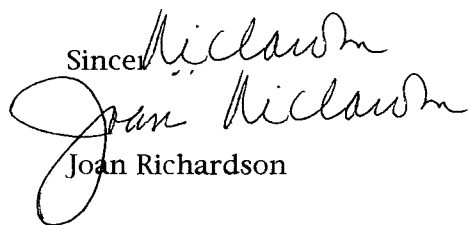 Sincer Richardson
Joan Richardson
Joan Richardson